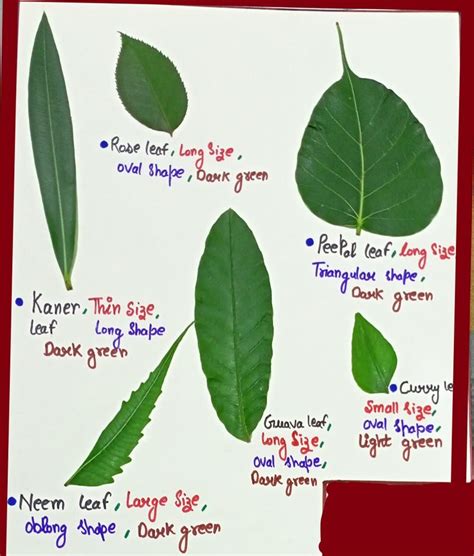 • Rose leaf, Long Size,
oval shape, Dark green
• PeePal leaf, long Size
Triangular shape,
Dark green
• Kaner, Thin Size,
leaf Long Shape
Dark green
• Curry le
Small Size,
oval shape,
Light green
Guava leaf,
Long Size,
oval shape,
Dark green
• Neem leaf, Large Size,
oblong shape, Dark green